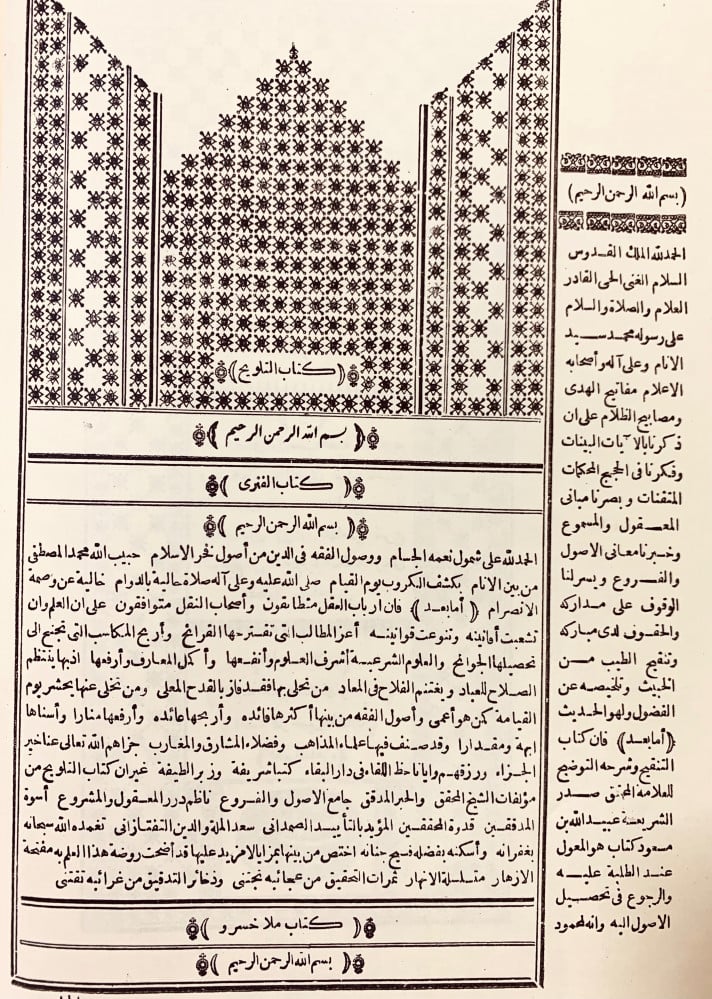 ﴿كتاب التلويح﴾
﴿بسم الله الرحمن الرحيم﴾
﴿كتاب الفنرى﴾
﴿بسم الله الرحمن الرحيم﴾
الحمد لله على شمول نعمه الجسام ووصول الفقه فى الدين من أصول نفر الاسلام حبيب الله محمد المصطفى
من بين الانام بكشف الكروب يوم القيام صلى الله عليه وعلى آله صلاة حالية بالدوام خالية عن وصمة
الانصرام ﴿أما بعد﴾ فان ارباب العقل متطابقون وأصحاب النقل متوافقون على ان العلم وان
تشعبت أفانينه وتنوعت قوانينه أعز المطالب التى تقترحها القرائح وأربح المكاسب التى تجتنح الى
تحصيلها الجوانح والعلوم الشرعية أشرف العلوم وأنفعها وأكمل المعارف وأرفعها اذ بها ينتظم
الصلاح للعباد ويغتنم الفلاح فى المعاد من تحلى بها فقد فاز بالقدح المعلى ومن تخلى عنها يحشر يوم
القيامة كمن هو أعمى وأصول الفقه من بينها أكثرها فائده وأربحها عائده وأرفعها منارا وأسناها
ابهة ومقدارا وقد صنف فيها علماء المذاهب وفضلاء المشارق والمغارب جزاهم الله تعالى عنا خير
الجزاء ورزقهم وايانا حظ اللقاء فى دار البقاء كتبا شريفة وزبرا لطيفة غير ان كتاب التلويح من
مؤلفات الشيخ المحقق والحبر المدقق جامع الاصول والفروع ناظم درر المعقول والمشروع أسوة
المدققين قدوة المحققين المؤيد بالتأييد الصمدانى سعد الملة والدين التفتازانى تغمده الله سبحانه
بغفرانه وأسكنه بفضله فسيح جنانه اختص من بينها بمزايا لا مزيد عليها قد أضحت روضة هذا العلم به مفتحة
الازهار متسلسلة الانهار ثمرات التحقيق من عجائبه تجتنى وذخائر التدقيق من غرائبه تقتنى
﴿كتاب ملا خسرو﴾
﴿بسم الله الرحمن الرحيم﴾
(بسم الله الرحمن الرحيم)
الحمد لله الملك القدوس
السلام الغنى الحى القادر
العلام والصلاة والسلام
على رسوله محمد سيد
الانام وعلى آله وأصحابه
الاعلام مفاتيح الهدى
ومصابيح الظلام على ان
ذكرنا بالآيات البينات
وفكرنا فى الحجج المحكمات
المتقنات وبصرنا مبانى
المعقول والمسموع
وخبرنا معانى الاصول
والفروع ويسر لنا
الوقوف على مداركه
والحفوف لدى مباركه
وتنقيح الطيب من
الخبيث وتلخيصه عن
الفضول ولهو الحديث
﴿أما بعد﴾ فان كتاب
التنقيح وشرحه التوضيح
للعلامة المحقق صدر
الشريعة عبيد الله بن
مسعود كتاب هو المعول
عند الطلبة عليه
والرجوع فى تحصيل
الاصول اليه وانه لمحمود